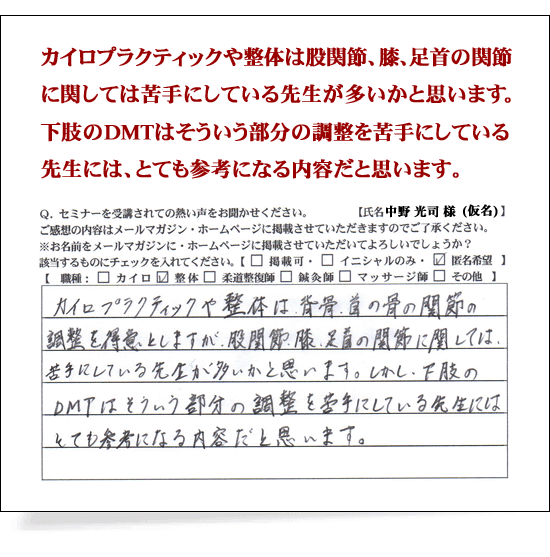 カイロプラクティックや整体は股関節、膝、足首の関節
に関しては苦手にしている先生が多いかと思います。
下肢のDMTはそういう部分の調整を苦手にしている
先生には、とても参考になる内容だと思います。
Q. セミナーを受講されての熱い声をお聞かせください。 【氏名 中野 光司 様 (仮名)】
ご感想の内容はメールマガジン・ホームページに掲載させていただきますのでご了承ください。
※お名前をメールマガジンに・ホームページに掲載させていただいてよろしいでしょうか?
該当するものにチェックを入れてください。【 □ 掲載可・ □ イニシャルのみ・ ☑ 匿名希望 】
【 職種: □ カイロ ☑ 整体 □ 柔道整復師 □ 鍼灸師 □ マッサージ師 □ その他 】
カイロプラクティックや整体は、背骨、首の骨の関節の
調整を得意としますが、股関節、膝、足首の関節に関しては、
苦手にしている先生が多いかと思います。しかし、下肢の
DMTはそういう部分の調整を苦手にしている先生には
とても参考になる内容だと思います。